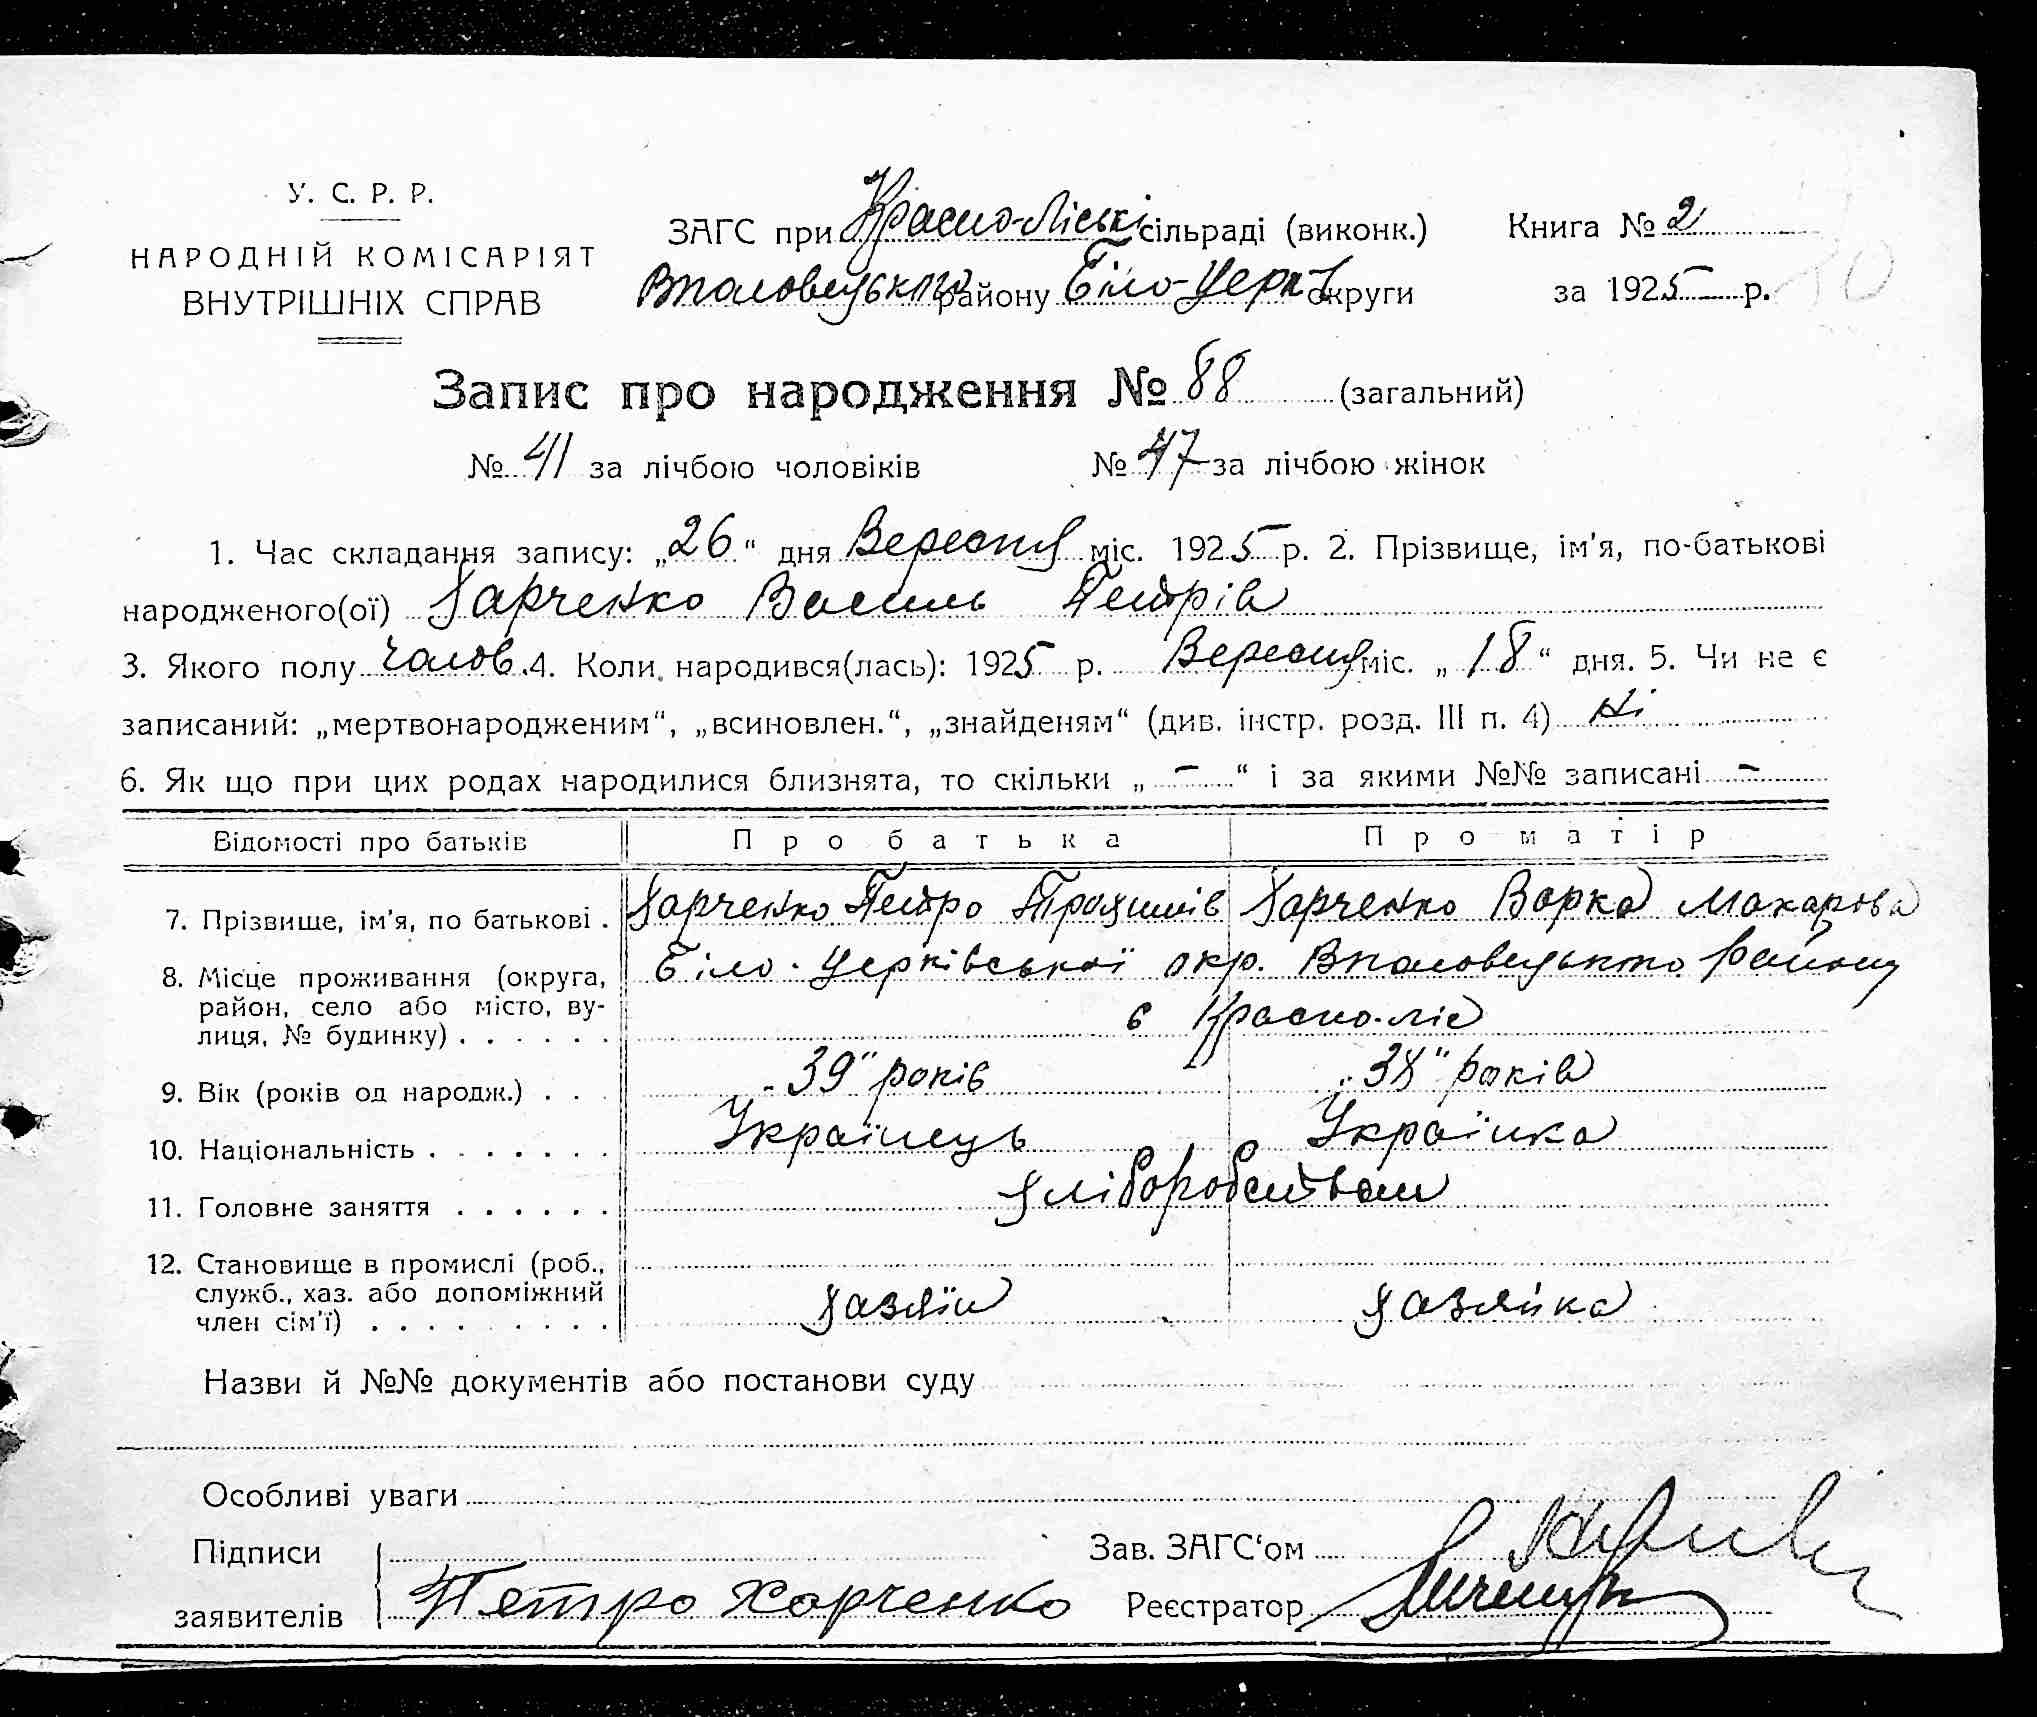 У. С. Р. Р.
НАРОДНІЙ КОМІСАРІЯТ
ВНУТРІШНІХ СПРАВ
ЗАГС при Красно-Ліські сільраді (виконк.)
Вполовецького району Біло-Церк округи
Книга № 2
за 1925 р.
Запис про народження № 88 (загальний)
№ 41 за лічбою чоловіків № 47 за лічбою жінок
1. Час складання запису: „26“ дня Вересня міс. 1925 р. 2. Прізвище, ім'я, по-батькові
народженого(ої) Харченко Василь Петрів
3. Якого полу чолов. 4. Коли народився(лась): 1925 р. Вересня міс. „18“ дня. 5. Чи не є
записаний: „мертвонародженим“, „всиновлен.“, „знайденям“ (див. інстр. розд. III п. 4) Ні
6. Як що при цих родах народилися близнята, то скільки „ – “ і за якими №№ записані –
Відомості про батьків Про батька Про матір
7. Прізвище, ім'я, по батькові . Харченко Петро Трохимів Харченко Варка Макарова
8. Місце проживання (округа, район, село або місто, вулиця, № будинку) . . . . . . Біло-Церківської окр. Вполовецького району
с Красно-ліс
9. Вік (років од народж.) . . . „39“ років „38“ років
10. Національність . . . . . . . Українець Українка
11. Головне заняття . . . . . . хліборобством
12. Становище в промислі (роб., служб., хаз. або допоміжний член сім'ї) . . . . . . . . . хазяїн хазяйка
Назви й №№ документів або постанови суду
Особливі уваги
Підписи Зав. ЗАГС'ом
заявителів Петро Харченко Реєстратор